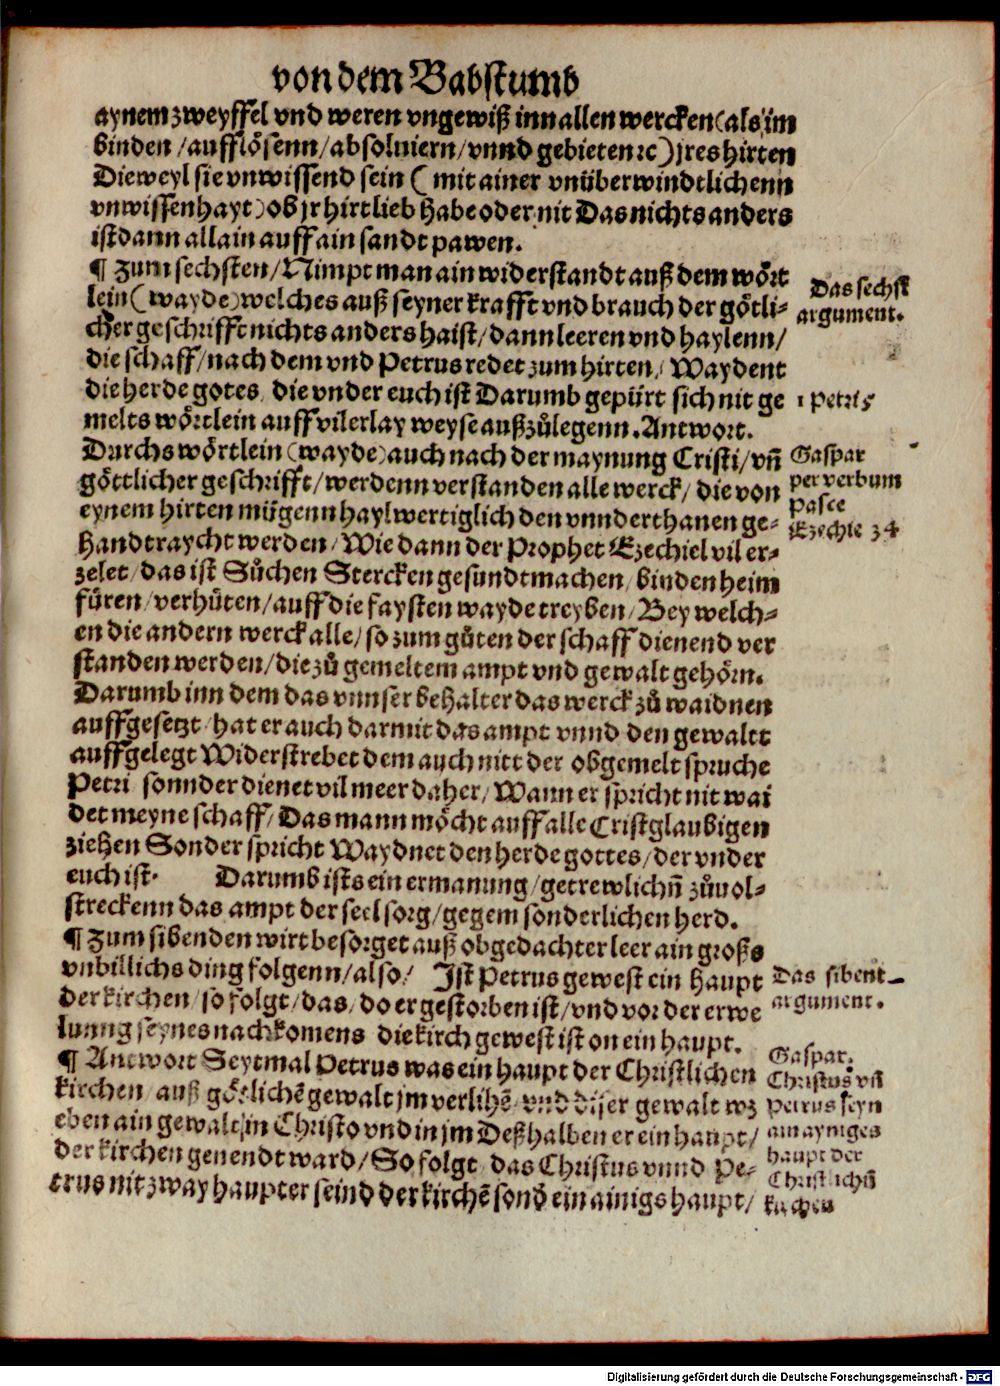 von dem Babstumb
aynem zweyffel vnd weren vngewiß inn allen wercken (als im
binden / aufflösenn / absoluiern / vnnd gebieten ꝛc) jres hirten
Dieweyl sie vnwissend sein ( mit ainer vnüberwindtlichenn
vnwissenhayt) ob jr hirt lieb habe oder nit Das nichts anders
ist dann allain auff ain sandt pawen.
¶ Zum sechsten / Nimpt man ain widerstandt auß dem wört
lein ( wayde) welches auß seyner krafft vnd brauch der götli⸗
cher geschrifft nichts anders haist / dann leeren vnd haylenn /
die schaff / nach dem vnd Petrus redet zum hirten / Waydent
die herde gotes die vnder euch ist Darumb gepürt sich nit ge
melts wörtlein auff vilerlay weyse außzůlegenn. Antwort.
Das sechst
argument.
1 petri 5
Durchs wörtlein (wayde) auch nach der maynung Cristi / vñ
göttlicher geschrifft / werdenn verstanden alle werck / die von
eynem hirten mügenn haylwertiglich den vnnderthanen ge⸗
handtraycht werden / Wie dann der Prophet Ezechiel vil er⸗
zelet / das ist Sůchen Stercken gesundtmachen / binden heim
füren / verhüten / auff die faysten wayde treyben / Bey welch⸗
en die andern werck alle / so zum gůten der schaff dienend ver
standen werden / die zů gemeltem ampt vnd gewalt gehörn.
Darumb inn dem das vnnser behalter das werck zů waidnen
auffgesetzt / hat er auch darmit das ampt vnnd den gewaltt
auffgelegt Widerstrebet dem auch nitt der obgemelt spruche
Petri sonnder dienet vil meer daher / Wann er spricht nit wai
det meyne schaff / Das mann möcht auff alle Cristglaubigen
ziehen Sonder spricht Waydnet den herde gottes / der vnder
euch ist. Darumb ists ein ermanung / getrewlichñ zůuol⸗
streckenn das ampt der seel sorg / gegem sonderlichen herd.
Gaspar
per verbum
Pasce
Ezechie 34
¶ Zum sibenden wirt besorget auß obgedachter leer ain groß
vnbillichs ding folgenn / also / Ist Petrus gewest ein haupt
der kirchen / so folgt / das / do er gestorben ist / vnd vor der erwe
lunng seynes nachkomens die kirch gewest ist on ein haupt.
Das sibent
argument.
¶ Antwort Seytmal Petrus was ein haupt der Christlichen
kirchen auß götlichē gewalt jm verlihē / vnd diser gewalt wz
eben ain gewalt / in Christo vnd in jm Deßhalben er ein haupt /
der kirchen genendt ward / So folgt das Christus vnnd Pe⸗
trus nit zway haupter seind der kirchē sond̄ ein ainigs haupt /
Gaspar.
Christus vñ
petrus seyn
ain ayniges
haupt der
Christlichñ
kirchen
Digitalisierung gefördert durch die Deutsche Forschungsgemeinschaft - DFG